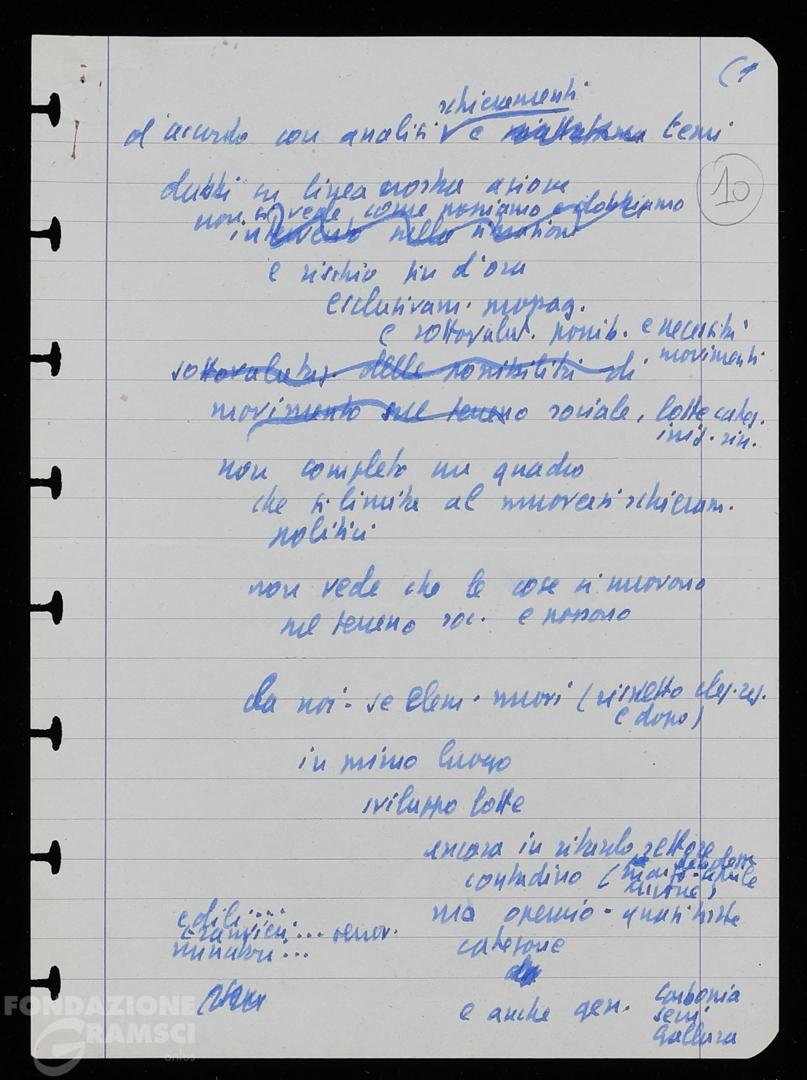 (1
schieramenti
d'accordo con analisi e temi
10
dubbi su linea nostra azione
non si vede come poniamo e dobbiamo
intervento nella situazione
e rischio fin d'ora
esclusivam. propag.
e sottovalut. possib. e necessità
movimenti
sottovalutaz. delle possibilità di
movimento sul terreno sociale, lotte categ.
iniz. sin.
non completo un quadro
che si limita al muoversi schieram.
politici
non vede che le cose si muovono
sul terreno soc. e possono
da noi - se elem. nuovi (rispetto elez. reg.
e dopo)
in primo luogo
sviluppo lotte
ancora in ritardo settore
contadino (
ma operaio - quasi tutte
categorie
edili....
minatori...
e anche gen. Carbonia
Gallura
FONDAZIONE
GRAMSCI
onlus